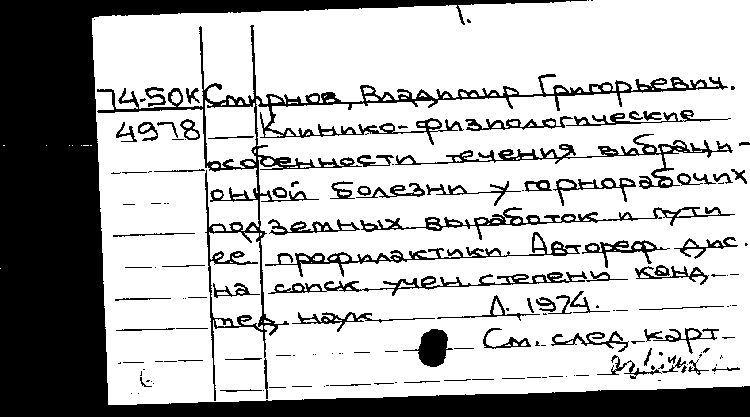 1.
74-50К Смирнов, Владимир Григорьевич.
4978 Клинико-физиологические
особенности течения вибраци-
онной болезни у горнорабочих
подземных выработок и пути
ее профилактики. Автореф. дис.
на соиск. учен. степени канд.
мед. наук. Л., 1974.
См. след. карт.
6